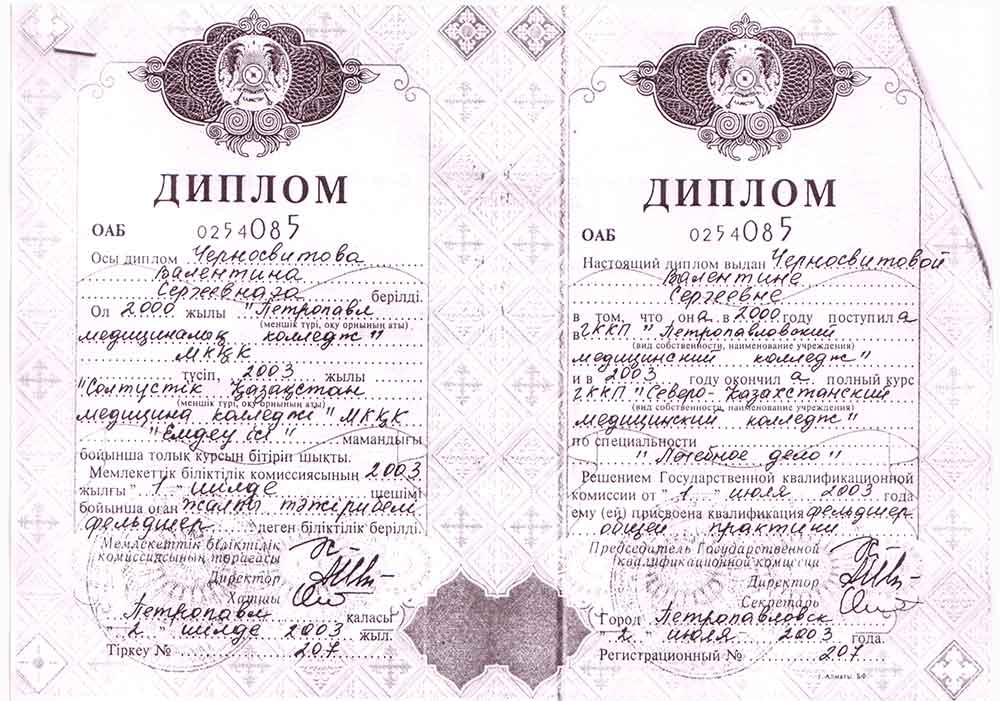 ДИПЛОМ
ОАБ 0254085
Осы диплом Черносвитова
Валентина
Сергеевнаға берілді.
Ол 2000 жылы "Петропавл
(меншік түрі, оқу орнының аты)
медициналық колледж"
МКҚК
түсіп, 2003 жылы
"Солтүстік Қазақстан
(меншік түрі, оқу орнының аты)
медицина колледж" МКҚК
"Емдеу ісі" мамандығы
бойынша толық курсын бітіріп шықты.
Мемлекеттік біліктілік комиссиясының 2003
жылғы "1" шілде шешімі
бойынша оған жалпы тәжірибелі
фельдшер деген біліктілік берілді.
Мемлекеттік біліктілік
комиссиясының төрағасы
Директор
Хатшы
Петропавл қаласы
"2" шілде 2003 жыл.
Тіркеу № 207
ДИПЛОМ
ОАБ 0254085
Настоящий диплом выдан Черносвитовой
Валентине
Сергеевне
в том, что она в 2000 году поступила
в ГККП "Петропавловский
(вид собственности, наименование учреждения)
медицинский колледж"
и в 2003 году окончила полный курс
ГККП "Северо-Казахстанский
(вид собственности, наименование учреждения)
медицинский колледж"
по специальности
"Лечебное дело"
Решением Государственной квалификационной
комиссии от "1" июля 2003 года
ему (ей) присвоена квалификация фельдшер
общей практики
Председатель Государственной
квалификационной комиссии
Директор
Секретарь
Город Петропавловск
"2" июля 2003 года.
Регистрационный № 207
г. Алматы, БФ